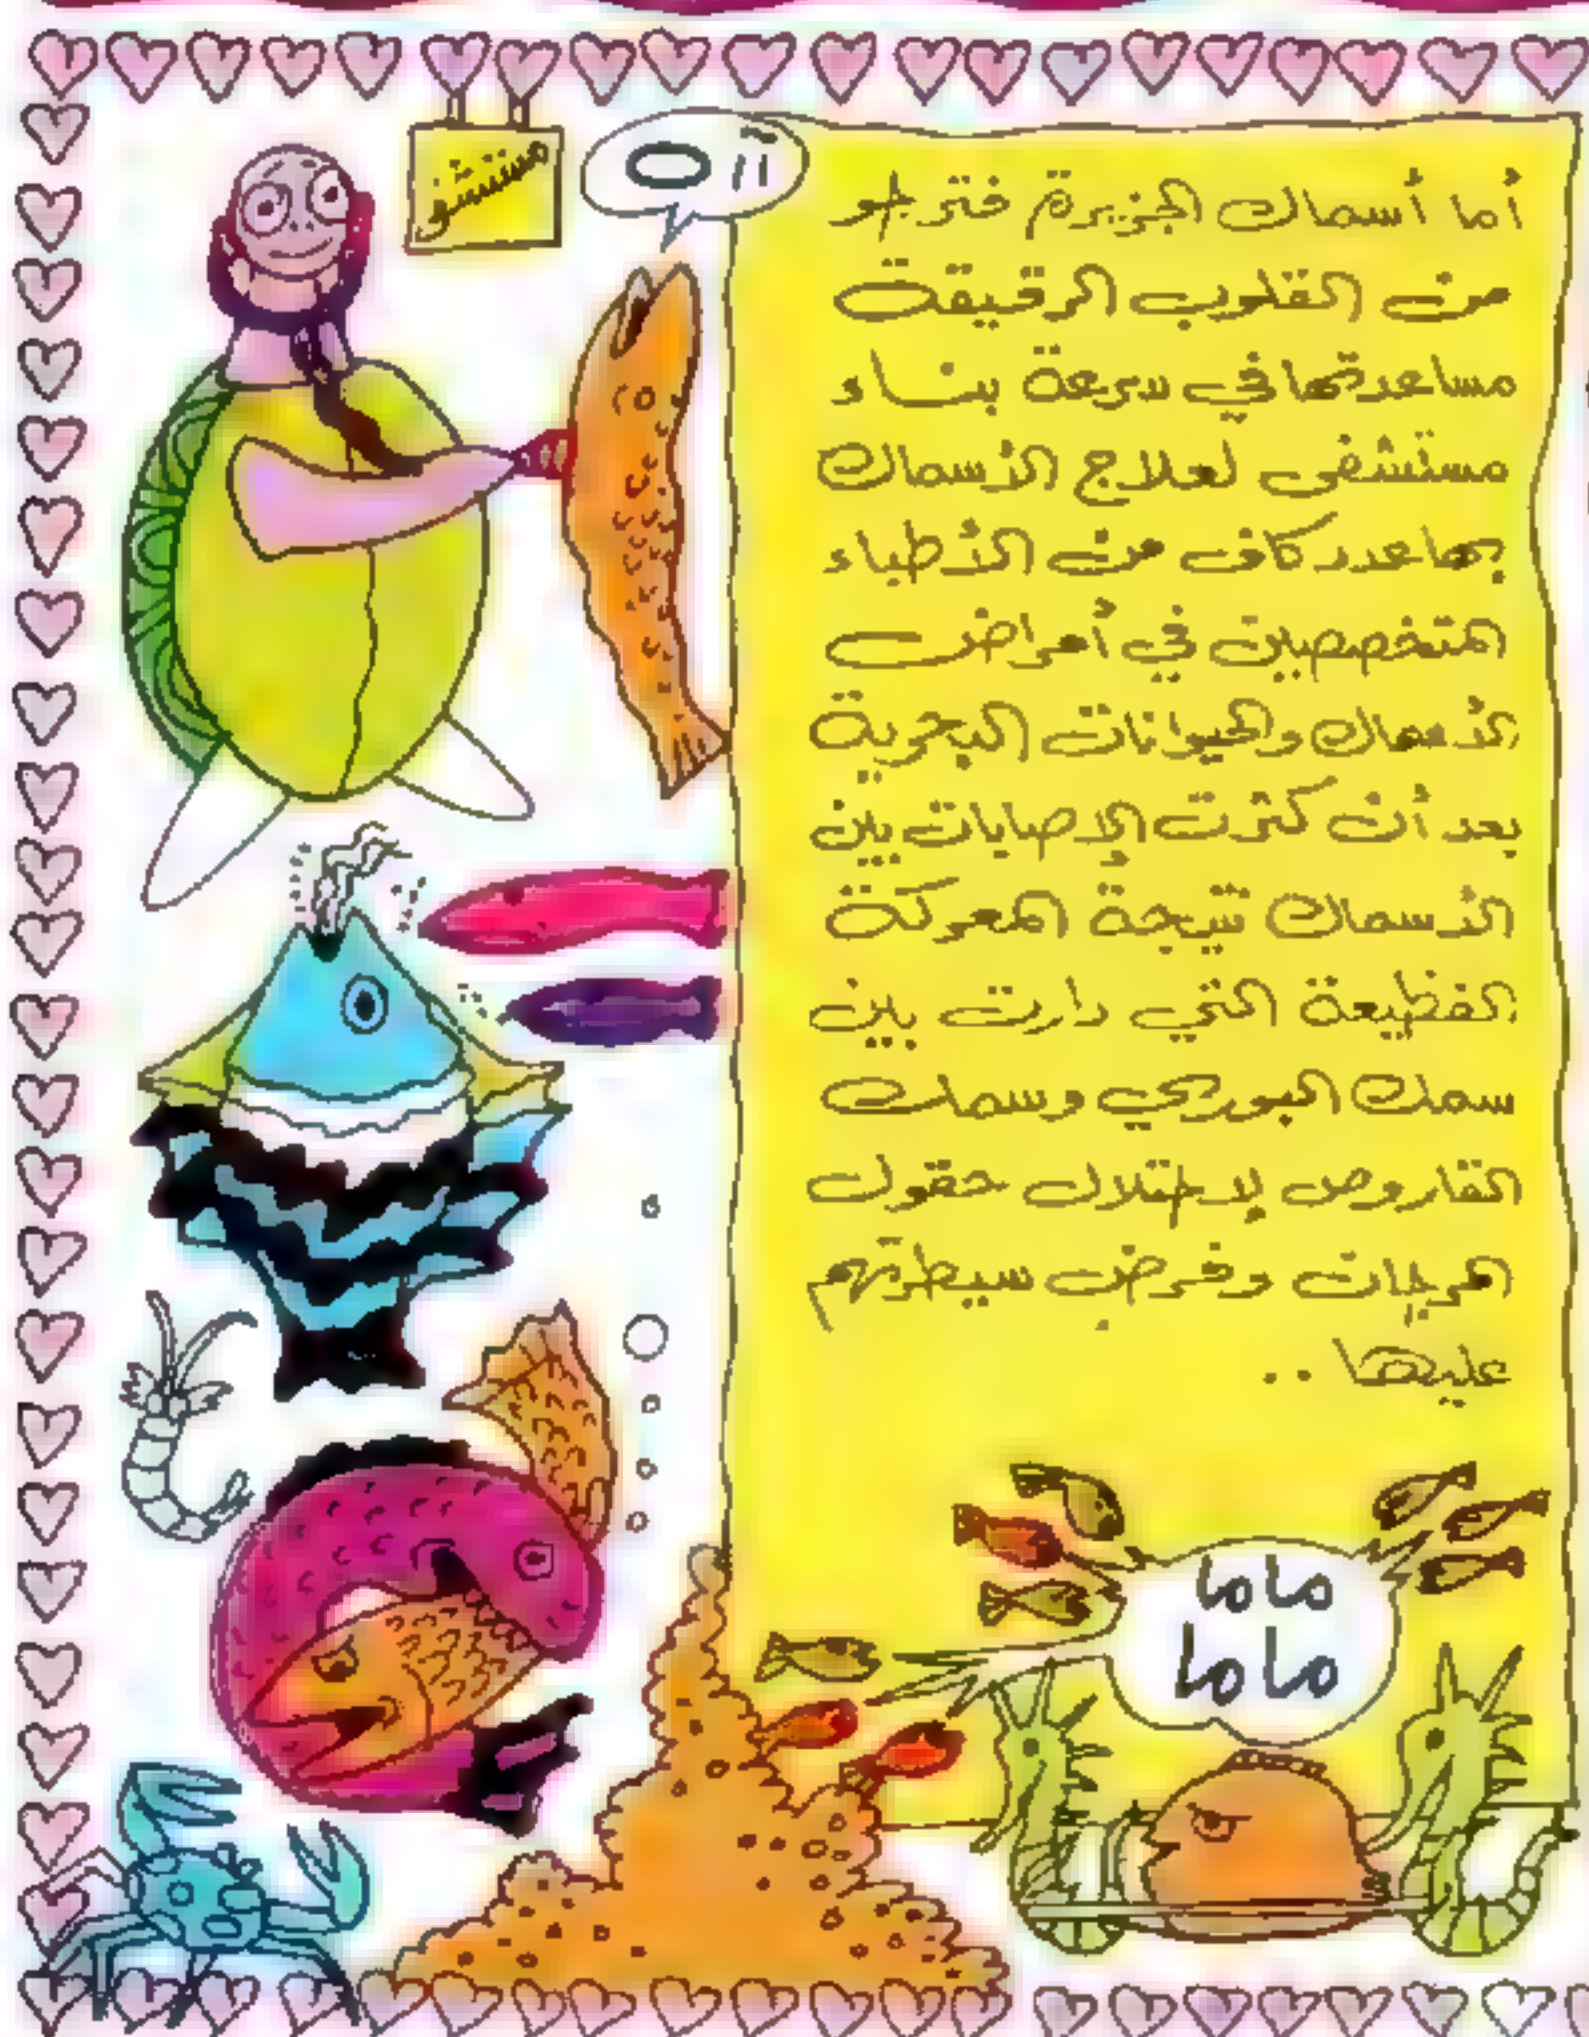 مستشفى
آآ ه
أما أسماك الجزيرة فترجو
من القلوب الرقيقة
مساعدتها في سرعة بناء
مستشفى لعلاج الأسماك
بها عدد كاف من الأطباء
المتخصصين في أمراض
الأسماك والحيوانات البحرية
بعد أن كثرت الإصابات بين
الأسماك نتيجة المعركة
الفظيعة التي دارت بين
سمك البوري وسمك
القاروص لاحتلال حقول
المرجان وفرض سيطرتهم
عليها ..
ماما
ماما